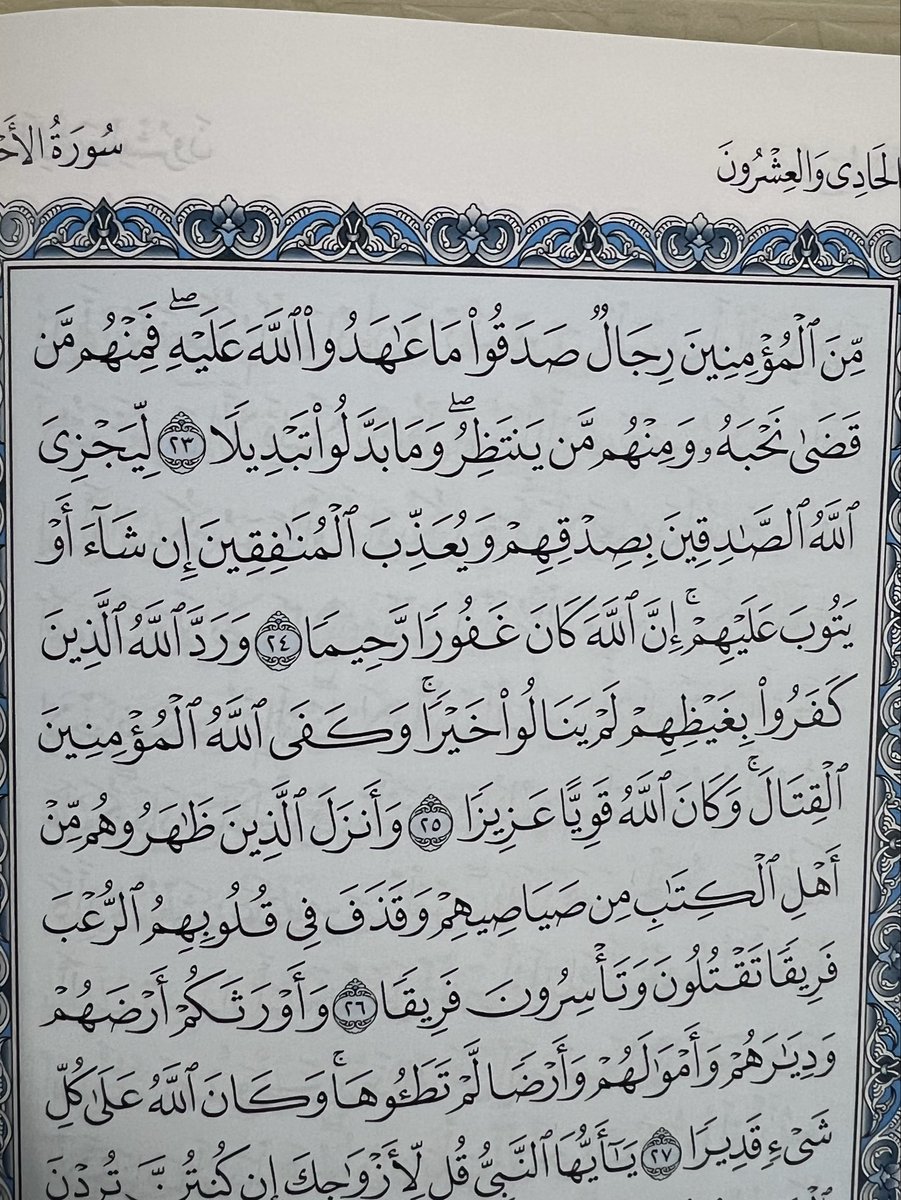 الحَادِى وَالعِشْرُونَ
سُورَةُ
مِّنَ ٱلْمُؤْمِنِينَ رِجَالٌ صَدَقُوا۟ مَا عَٰهَدُوا۟ ٱللَّهَ عَلَيْهِ ۖ فَمِنْهُم مَّن
قَضَىٰ نَحْبَهُۥ وَمِنْهُم مَّن يَنتَظِرُ ۖ وَمَا بَدَّلُوا۟ تَبْدِيلًا ٢٣ لِّيَجْزِىَ
ٱللَّهُ ٱلصَّٰدِقِينَ بِصِدْقِهِمْ وَيُعَذِّبَ ٱلْمُنَٰفِقِينَ إِن شَآءَ أَوْ
يَتُوبَ عَلَيْهِمْ ۚ إِنَّ ٱللَّهَ كَانَ غَفُورًا رَّحِيمًا ٢٤ وَرَدَّ ٱللَّهُ ٱلَّذِينَ
كَفَرُوا۟ بِغَيْظِهِمْ لَمْ يَنَالُوا۟ خَيْرًا ۚ وَكَفَى ٱللَّهُ ٱلْمُؤْمِنِينَ
ٱلْقِتَالَ ۚ وَكَانَ ٱللَّهُ قَوِيًّا عَزِيزًا ٢٥ وَأَنزَلَ ٱلَّذِينَ ظَٰهَرُوهُم مِّنْ
أَهْلِ ٱلْكِتَٰبِ مِن صَيَاصِيهِمْ وَقَذَفَ فِى قُلُوبِهِمُ ٱلرُّعْبَ
فَرِيقًا تَقْتُلُونَ وَتَأْسِرُونَ فَرِيقًا ٢٦ وَأَوْرَثَكُمْ أَرْضَهُمْ
وَدِيَٰرَهُمْ وَأَمْوَٰلَهُمْ وَأَرْضًا لَّمْ تَطَـُٔوهَا ۚ وَكَانَ ٱللَّهُ عَلَىٰ كُلِّ
شَىْءٍ قَدِيرًا ٢٧ يَٰٓأَيُّهَا ٱلنَّبِىُّ قُل لِّأَزْوَٰجِكَ إِن كُنتُنَّ تُرِدْنَ